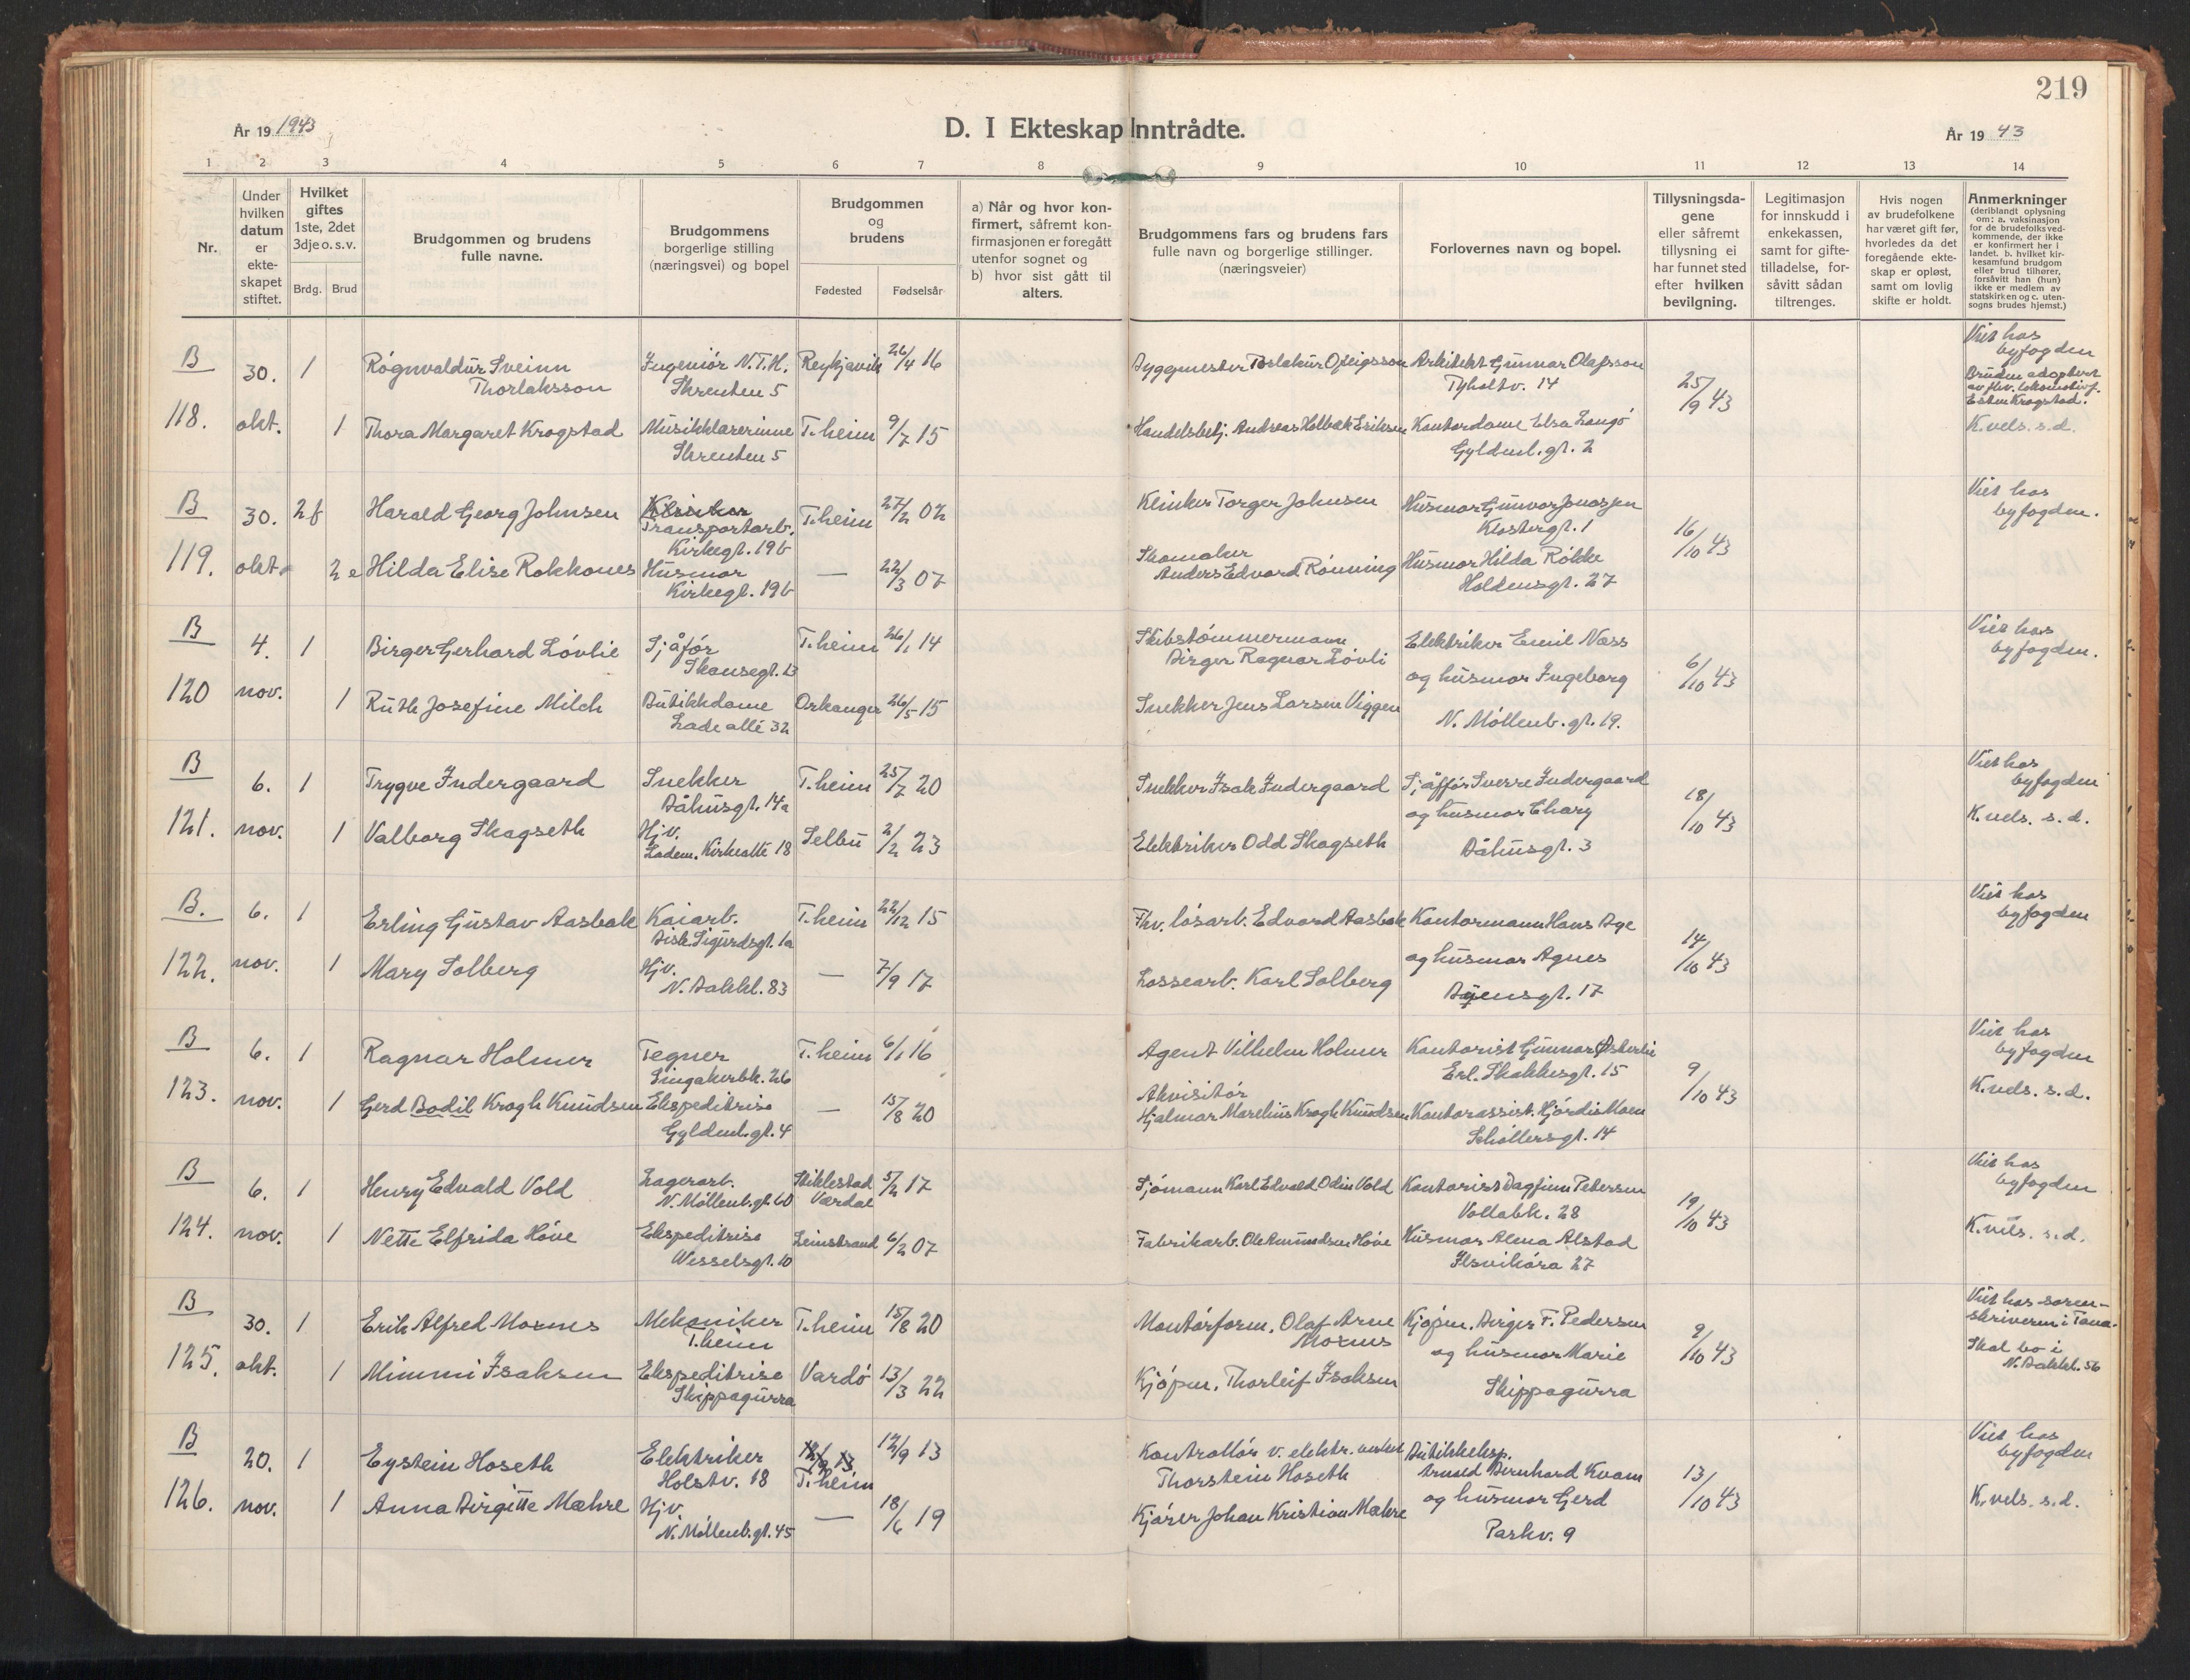 219
År 19 1943
D. I Ekteskap Inntrådte.
År 19 43
1 2 3 4 5 6 7 8 9 10 11 12 13 14
Nr.
Under hvilken datum er ekte-skapet stiftet.
Hvilket giftes 1ste, 2det 3dje o. s. v.
Brdg. Brud
Brudgommen og brudens fulle navne.
Brudgommens borgerlige stilling (næringsvei) og bopel
Brudgommen og brudens
Fødested Fødselsår
a) Når og hvor kon-firmert, såfremt kon-firmasjonen er foregått utenfor sognet og
b) hvor sist gått til alters.
Brudgommens fars og brudens fars fulle navn og borgerlige stillinger. (næringsveier)
Forlovernes navn og bopel.
Tillysningsda-gene eller såfremt tillysning ei har funnet sted efter hvilken bevilgning.
Legitimasjon for innskudd i enkekassen, samt for gifte-tilladelse, for-såvitt sådan tiltrenges.
Hvis nogen av brudefolkene har været gift før, hvorledes da det foregående ekte-skap er opløst, samt om lovlig skifte er holdt.
Anmerkninger (deriblandt oplysning om: a. vaksinasjon for de brudefolks ved-kommende, der ikke er konfirmert her i landet. b. hvilket kir-kesamfund brudgom eller brud tilhører, forsåvitt han (hun) ikke er medlem av statskirken og c. uten-sogns brudes hjemst.)
B 30. 1 Rögnvaldur Sveinn Thorlaksson Ingeniör N.T.H. Skrenten 5 Reykjavik 26/4 16 Byggmester Thorlakur Ofeigsson Arkitekt Gunnar Olafsson Tyholtv. 14 25/9 43 Viet hos byfogden Bruden adoptert av fhv. lokomotivf. Esten Krogstad.
118. okt. 1 Thora Margaret Krogstad Musikklærerinne Skrenten 5 T.heim 9/7 15 Handelsbetj. Andreas Holbæk Eriksen Kontordame Elsa Langö Gyldenl. gt. 2 K. vels. s.d.
B 30. 2 f Harald Georg Johnsen Klinker Transportarb. Kirkegt. 19b T.heim 27/2 02 Klinker Torger Johnsen Husmor Gunvor Jonassen Klostergt. 1 16/10 43 Viet hos byfogden.
119. okt. 2 e Hilda Elise Rokkones Husmor Kirkegt. 19b — 22/3 07 Skomaker Anders Edvard Rönning Husmor Hilda Rökke Holdensgt. 27
B 4. 1 Birger Gerhard Lövlie Sjåför Skansegt. 13 T.heim 26/1 14 Skibstömmermann Birger Ragnar Lövli Elektriker Emil Næss 6/10 43 Viet hos byfogden.
120 nov. 1 Ruth Josefine Milch Butikkdame Lade allé 32 Orkanger 26/5 15 Snekker Jens Larsen Viggen og husmor Ingeborg N. Möllenb. gt. 19.
B 6. 1 Trygve Indergaard Snekker Båhusgt. 14a T.heim 25/7 20 Snekker Isak Indergaard Sjåfför Sverre Indergaard 18/10 43 Viet hos byfogden
121. nov. 1 Valborg Skagseth Hjv. Ladem. Kirkeallé 18 Selbu 2/2 23 Elektriker Odd Skagseth og husmor Chary Båhusgt. 3 K. vels. s.d.
B. 6. 1 Erling Gustav Aasbak Kaiarb. Bisk. Sigurdsgt. 1a T.heim 22/12 15 Fhv. lösarb. Edvard Aasbak Kontormann Hans Bye 14/10 43 Viet hos byfogden
122. nov. 1 Mary Solberg Hjv. N. Bakkl. 83 — 7/9 17 Lossearb. Karl Solberg og husmor Agnes Byensgt. 17
B 6. 1 Ragnar Holmer Tegner Singsakerbk. 26 T.heim 6/1 16 Agent Vilhelm Holmer Kontorist Gunnar Österlie Erl. Skakkesgt. 15 9/10 43 Viet hos byfogden
123. nov. 1 Gerd Bodil Krogh Knudsen Ekspeditrise Gyldenl. gt. 4 — 15/8 20 Akvisitör Hjalmar Marelius Krogh Knudsen Kontorassist. Hjördis Moen Schöllersgt. 14 K. vels. s.d.
B 6. 1 Henry Edvald Vold Lagerarb. N. Möllenb. gt. 60 Stiklestad Værdal 5/2 17 Sjömann Karl Edvald Odin Vold Kontorist Dagfinn Petersen Vollabk. 28 19/10 43 Viet hos byfogden
124. nov. 1 Nette Elfrida Höve Ekspeditrise Wesselsgt. 10 Leinstrand 6/2 07 Fabrikarb. Ole Amundsen Höve Husmor Alma Alstad Ilsvikøra 27 K. vels. s.d.
B 30. 1 Erik Alfred Moxnes Mekaniker T.heim T.heim 15/8 20 Montörform. Olaf Arne Moxnes Kjöpm. Birger F. Pedersen 9/10 43 Viet hos soren-skriveren i Tana.
125. okt. 1 Mimmi Isaksen Ekspeditrise Skippagurra Vardö 13/3 22 Kjöpm. Thorleif Isaksen og husmor Marie Skippagurra Skal bo i N. Bakkl. 56
B 20. 1 Eystein Hoseth Elektriker Holstv. 18 T.heim 12/9 13 Kontrollör v. elektr. verket Thorstein Hoseth Butikkeksp. Arnold Bernhard Kvam 13/10 43 Viet hos byfogden
126. nov. 1 Anna Birgitte Mæhre Hjv. N. Möllenb. gt. 45 — 18/6 19 Kjörer Johan Kristian Mæhre og husmor Gerd Parkv. 9 K. vels. s.d.